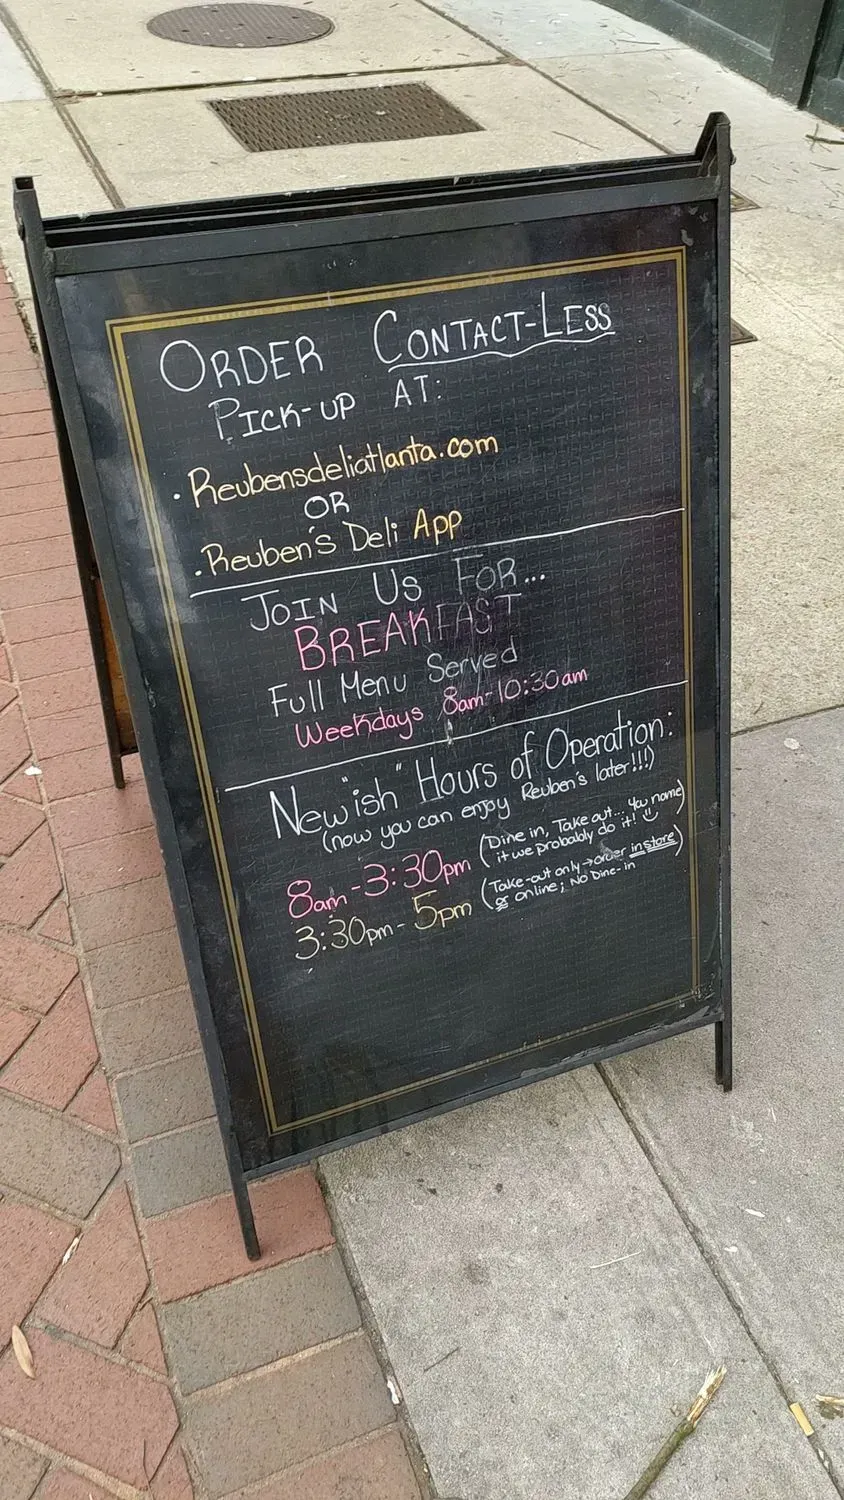 ORDER CONTACT-LESS
PICK-UP AT:
• Reubensdeliatlanta.com
OR
• Reuben's Deli App
JOIN US FOR...
BREAKFAST
Full Menu Served
Weekdays 8am-10:30am
New"ish" Hours of Operation:
(now you can enjoy Reuben's later!!!)
8am-3:30pm (Dine in, Take out... You name
it we probably do it! !!)
3:30pm-5pm (Take-out only → order in store
or online; No Dine-in)